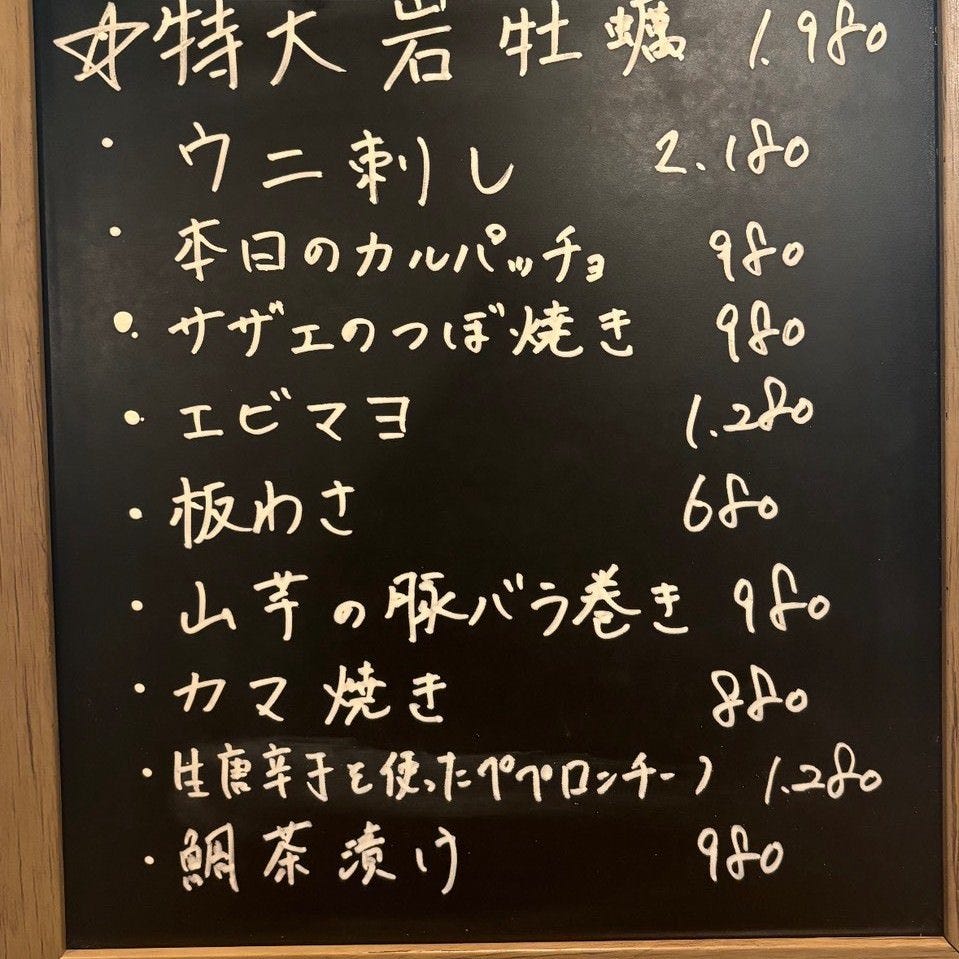 ☆特大岩牡蠣 1.980
・ウニ刺し 2.180
・本日のカルパッチョ 980
・サザエのつぼ焼き 980
・エビマヨ 1.280
・板わさ 680
・山芋の豚バラ巻き 980
・カマ焼き 880
・生唐辛子を使ったペペロンチーノ 1.280
・鯛茶漬け 980